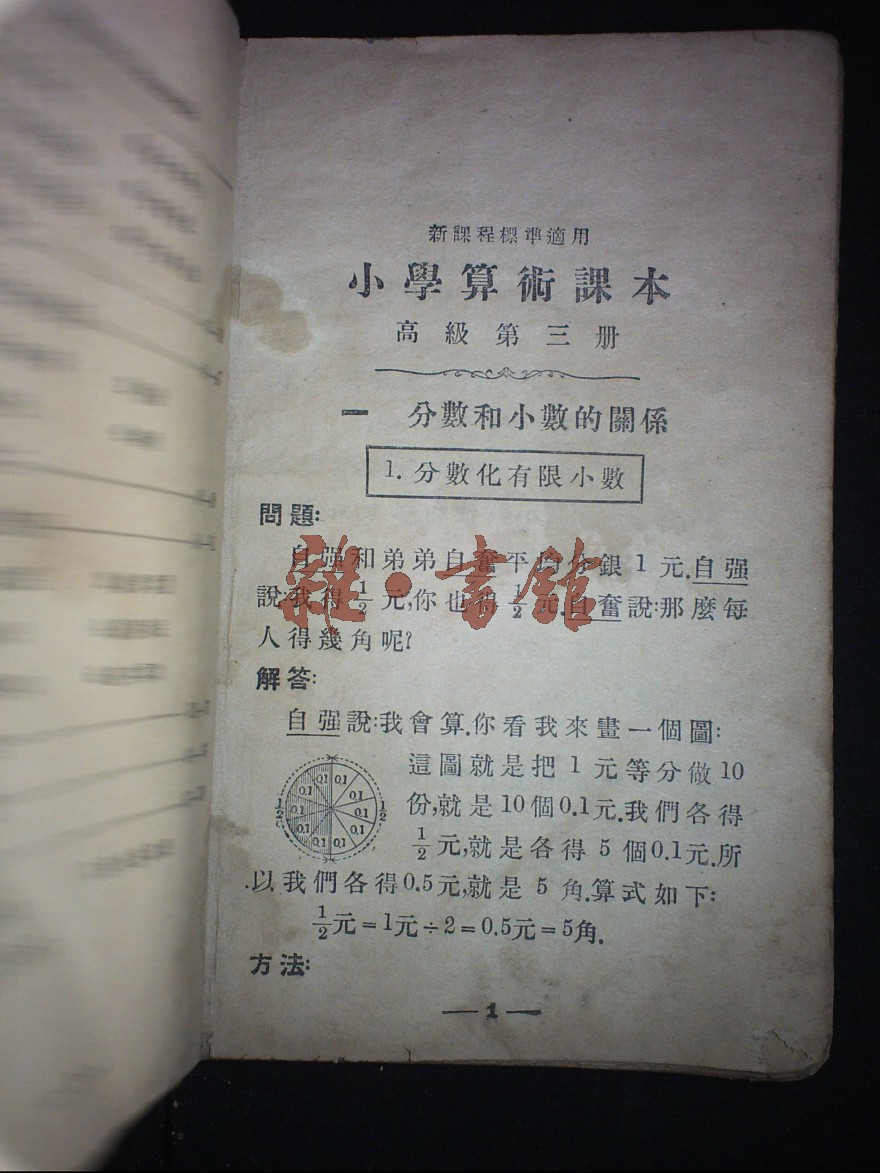 新課程標準適用
小學算術課本
高級第三册
一 分數和小數的關係
1. 分數化有限小數
問題:
自强和弟弟自奮平均分銀1元.自强
說:我得1/2元,你也得1/2元.自奮說:那麼每
人得幾角呢?
解答:
自强說:我會算.你看我來畫一個圖:
這圖就是把1元等分做10
份,就是10個0.1元.我們各得
1/2元,就是各得5個0.1元.所
以我們各得0.5元,就是5角.算式如下:
1/2 0.1 0.1 0.1 0.1 0.1 0.1 0.1 0.1 0.1 0.1 1/2
1/2元=1元÷2=0.5元=5角.
方法:
—1—
雜·書館